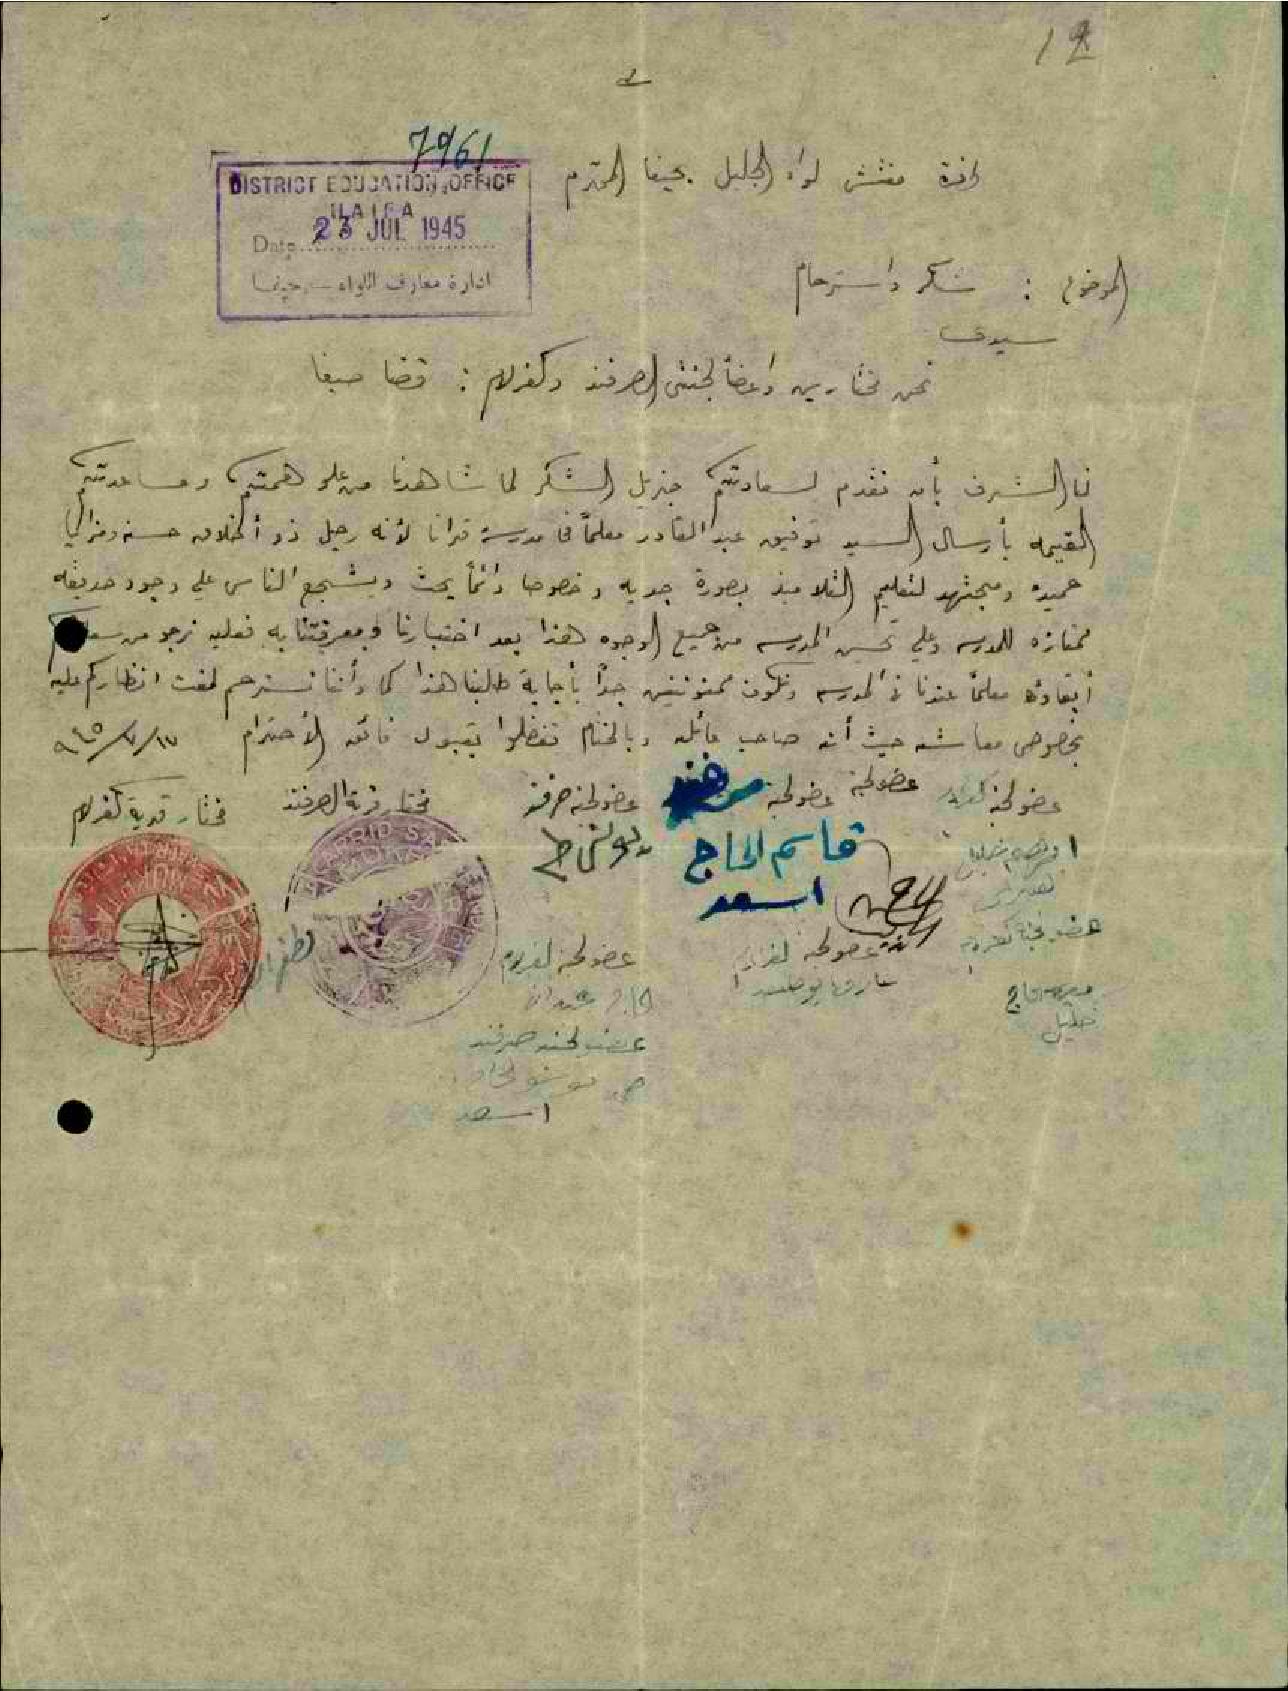 12
7961
DISTRICT EDUCATION OFFICE
HAIFA
Date 23 JUL 1945
ادارة معارف اللواء - حيفا
حضرة مفتش لواء الجليل بحيفا المحترم
الموضوع : شكر واسترحام
سيدي
نحن مختارين واعضأ لجنتي الصرفند وكفرلام : قضا حيفا
لنا الشرف بأن نقدم لسعادتكم جزيل الشكر لما شاهدنا من علو همتكم ومساعدتكم
القيمه بأرسال السيد توفيق عبد القادر معلماً في مدرسة قرانا لأنه رجل ذو أخلاق حسنه ومزايا
حميده ومجتهد لتعليم التلاميذ بصورة جديه وخصوصا دائماً يحث ويشجع الناس علي وجود حديقه
ممتازه للمدرسه وعلي تحسين المدرسه من جميع الوجوه هذا بعد اختبارنا ومعرفتنا به فعليه نرجو من سعادتكم
أبقاءه معلماً عندنا في المدرسه ونكون ممنونين جداً بأجابة طلبنا هذا كما وأننا نسترحم لفت انظاركم عليه
بخصوص معاشه حيث أنه صاحب عائله وبالختام تفضلوا بقبول فائق الأحترام ١٧/٧/٩٤٥
عضو لجنة كفرلام عضو لجنة عضو لجنة صرفند عضو لجنة صرفند مختار قرية الصرفند مختار قرية كفرلام
قاسم الحاج
اسعد
عضو لجنة كفرلام عضو لجنة كفرلام عضو لجنة كفرلام
خليل
عضو لجنة صرفند
اسعد